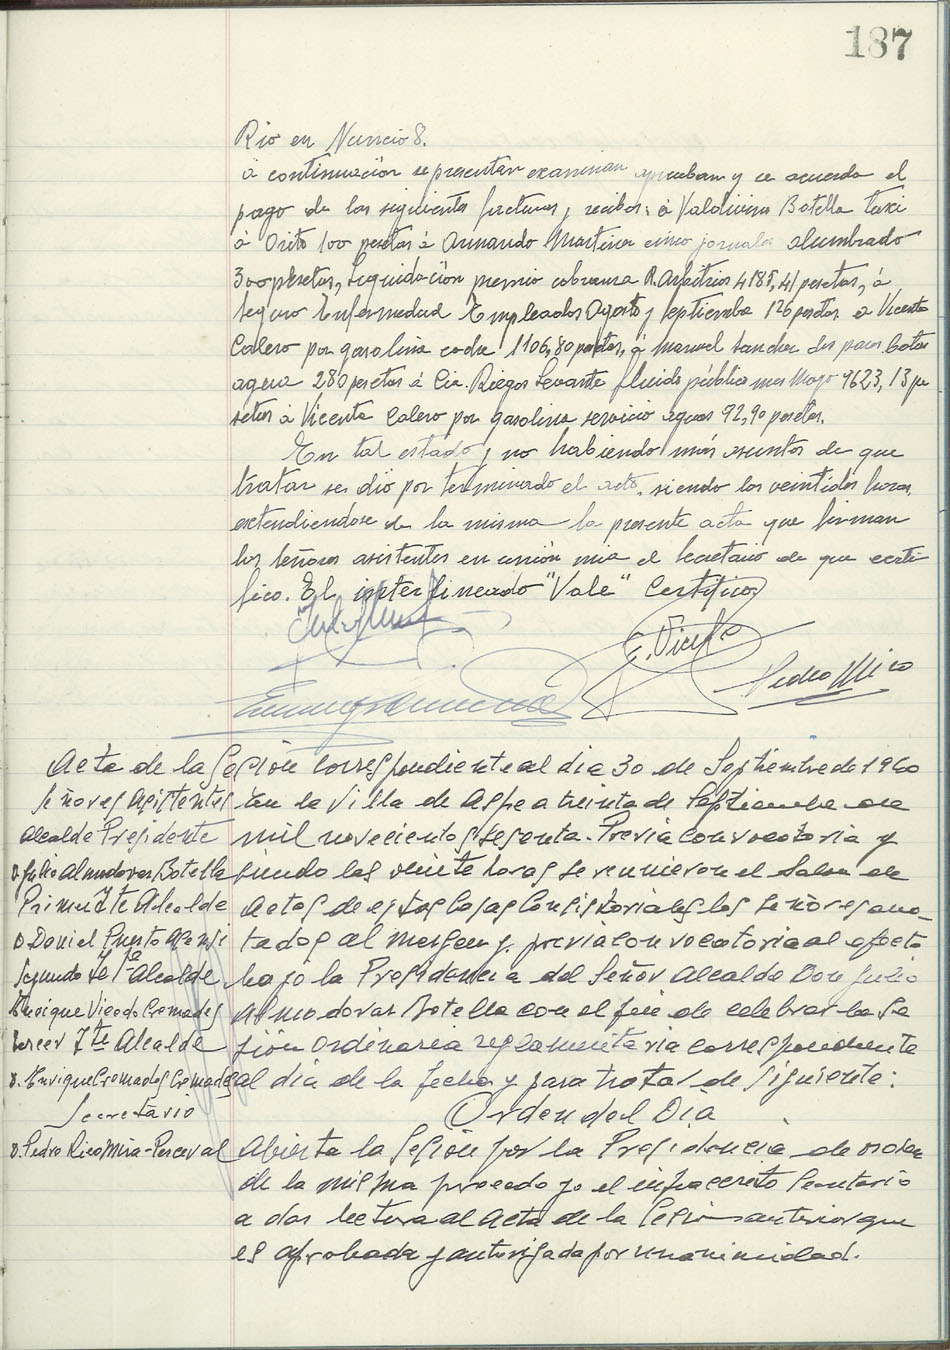 187
Rio en Nuncio 8.
á continuación se presentan examinan aprueban y se acuerda el
pago de las siguientes facturas y recibos: á Valdivina Botella taxi
á Orito 100 pesetas á Armando Martinez cinco jornales alumbrado
300 pesetas, liquidación premio cobranza R. Arbitrios 4187,41 pesetas, á
Seguro Enfermedad Empleados Agosto y Septiembre 126 pesetas á Vicente
Calero por gasolina coche 1106,80 pesetas, á Manuel Sanchez dos pares botas
agua 280 pesetas á Cia. Riegos Levante fluido público mes Mayo 9623,13 pe
setas á Vicente Calero por gasolina servicio aguas 92,90 pesetas.
En tal estado y no habiendo más asuntos de que
tratar se dió por terminado el acto, siendo las veintidos horas,
extendiendose de la misma la presente acta que firman
los Señores asistentes en unión mia el Secretario de que certi
fico. El interlineado "Vale" Certifico
Pedro Mira
Acta de la Sesión correspondiente al dia 30 de Septiembre de 1960
Señores Asistentes
Alcalde Presidente
D. Julio Almodovar Botella
Primer Tte Alcalde
D. Daniel Punto Asensi
Segundo Tte Alcalde
Enrique Vicedo Cremades
Tercer Tte Alcalde
D. Enrique Cremades Cremades
Secretario
D. Pedro Rico Mira-Perceval
En la Villa de Aspe a treinta de Septiembre de
mil novecientos sesenta. Previa convocatoria y
siendo las veinte horas se reunieron el Salon de
Actos de estas Casas Consistoriales los Señores ano-
tados al margen y previa convocatoria al efecto
bajo la Presidencia del Señor Alcalde Don Julio
Almodovar Botella con el fin de celebrar la Se
sión Ordinaria reglamentaria correspondiente
al dia de la fecha y para tratar de siguiente:
Orden del Dia
Abierta la Sesión por la Presidencia de orden
de la misma procedo yo el infrascrito Secretario
a dar lectura al Acta de la Sesion anterior que
es aprobada y autorizada por unanimidad.